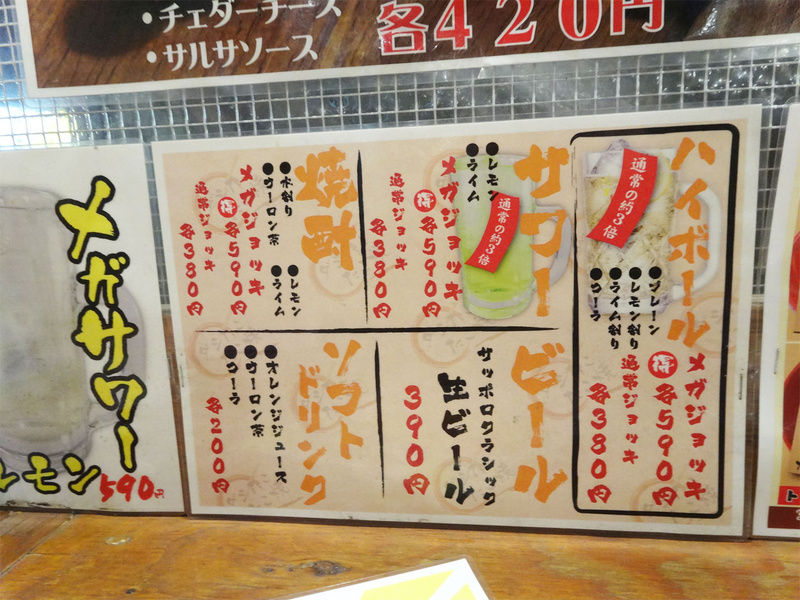 ・チェダーチーズ
・サルサソース
各420円
ハイボール
通常の約3倍
●プレーン
●レモン割り
●ライム割り
●コーラ
メガジョッキ
得 各590円
通常ジョッキ
各380円
サワー
通常の約3倍
●レモン
●ライム
メガジョッキ
得 各590円
通常ジョッキ
各380円
焼酎
●水割り
●ウーロン茶
●レモン
●ライム
メガジョッキ
得 各590円
通常ジョッキ
各380円
ビール
サッポロクラシック
生ビール
390円
ソフト
ドリンク
●オレンジジュース
●ウーロン茶
●コーラ
各200円
メガサワー
レモン590円